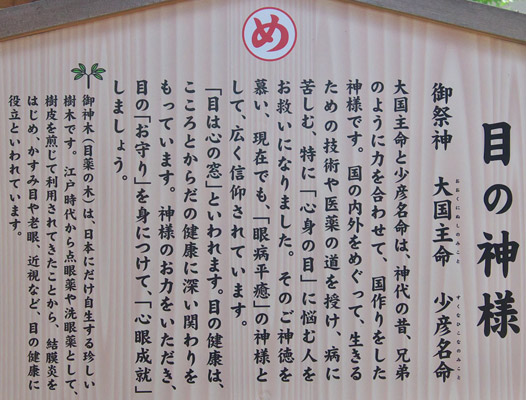 め
目の神様
御祭神 大国主命 少彦名命
おおくにぬしのみこと すくなひこなのみこと
大国主命と少彦名命は、神代の昔、兄弟
のように力を合わせて、国作りをした
神様です。国の内外をめぐって、生きる
ための技術や医薬の道を授け、病に
苦しむ、特に「心身の目」に悩む人を
お救いになりました。そのご神徳を
慕い、現在でも、「眼病平癒」の神様と
して、広く信仰されています。
「目は心の窓」といわれます。目の健康は、
こころとからだの健康に深い関わりを
もっています。神様のお力をいただき、
目の「お守り」を身につけて、「心眼成就」
しましょう。
御神木（目薬の木）は、日本にだけ自生する珍しい
樹木です。江戸時代から点眼薬や洗眼薬として、
樹皮を煎じて利用されてきたことから、結膜炎を
はじめ、かすみ目や老眼、近視など、目の健康に
役立といわれています。